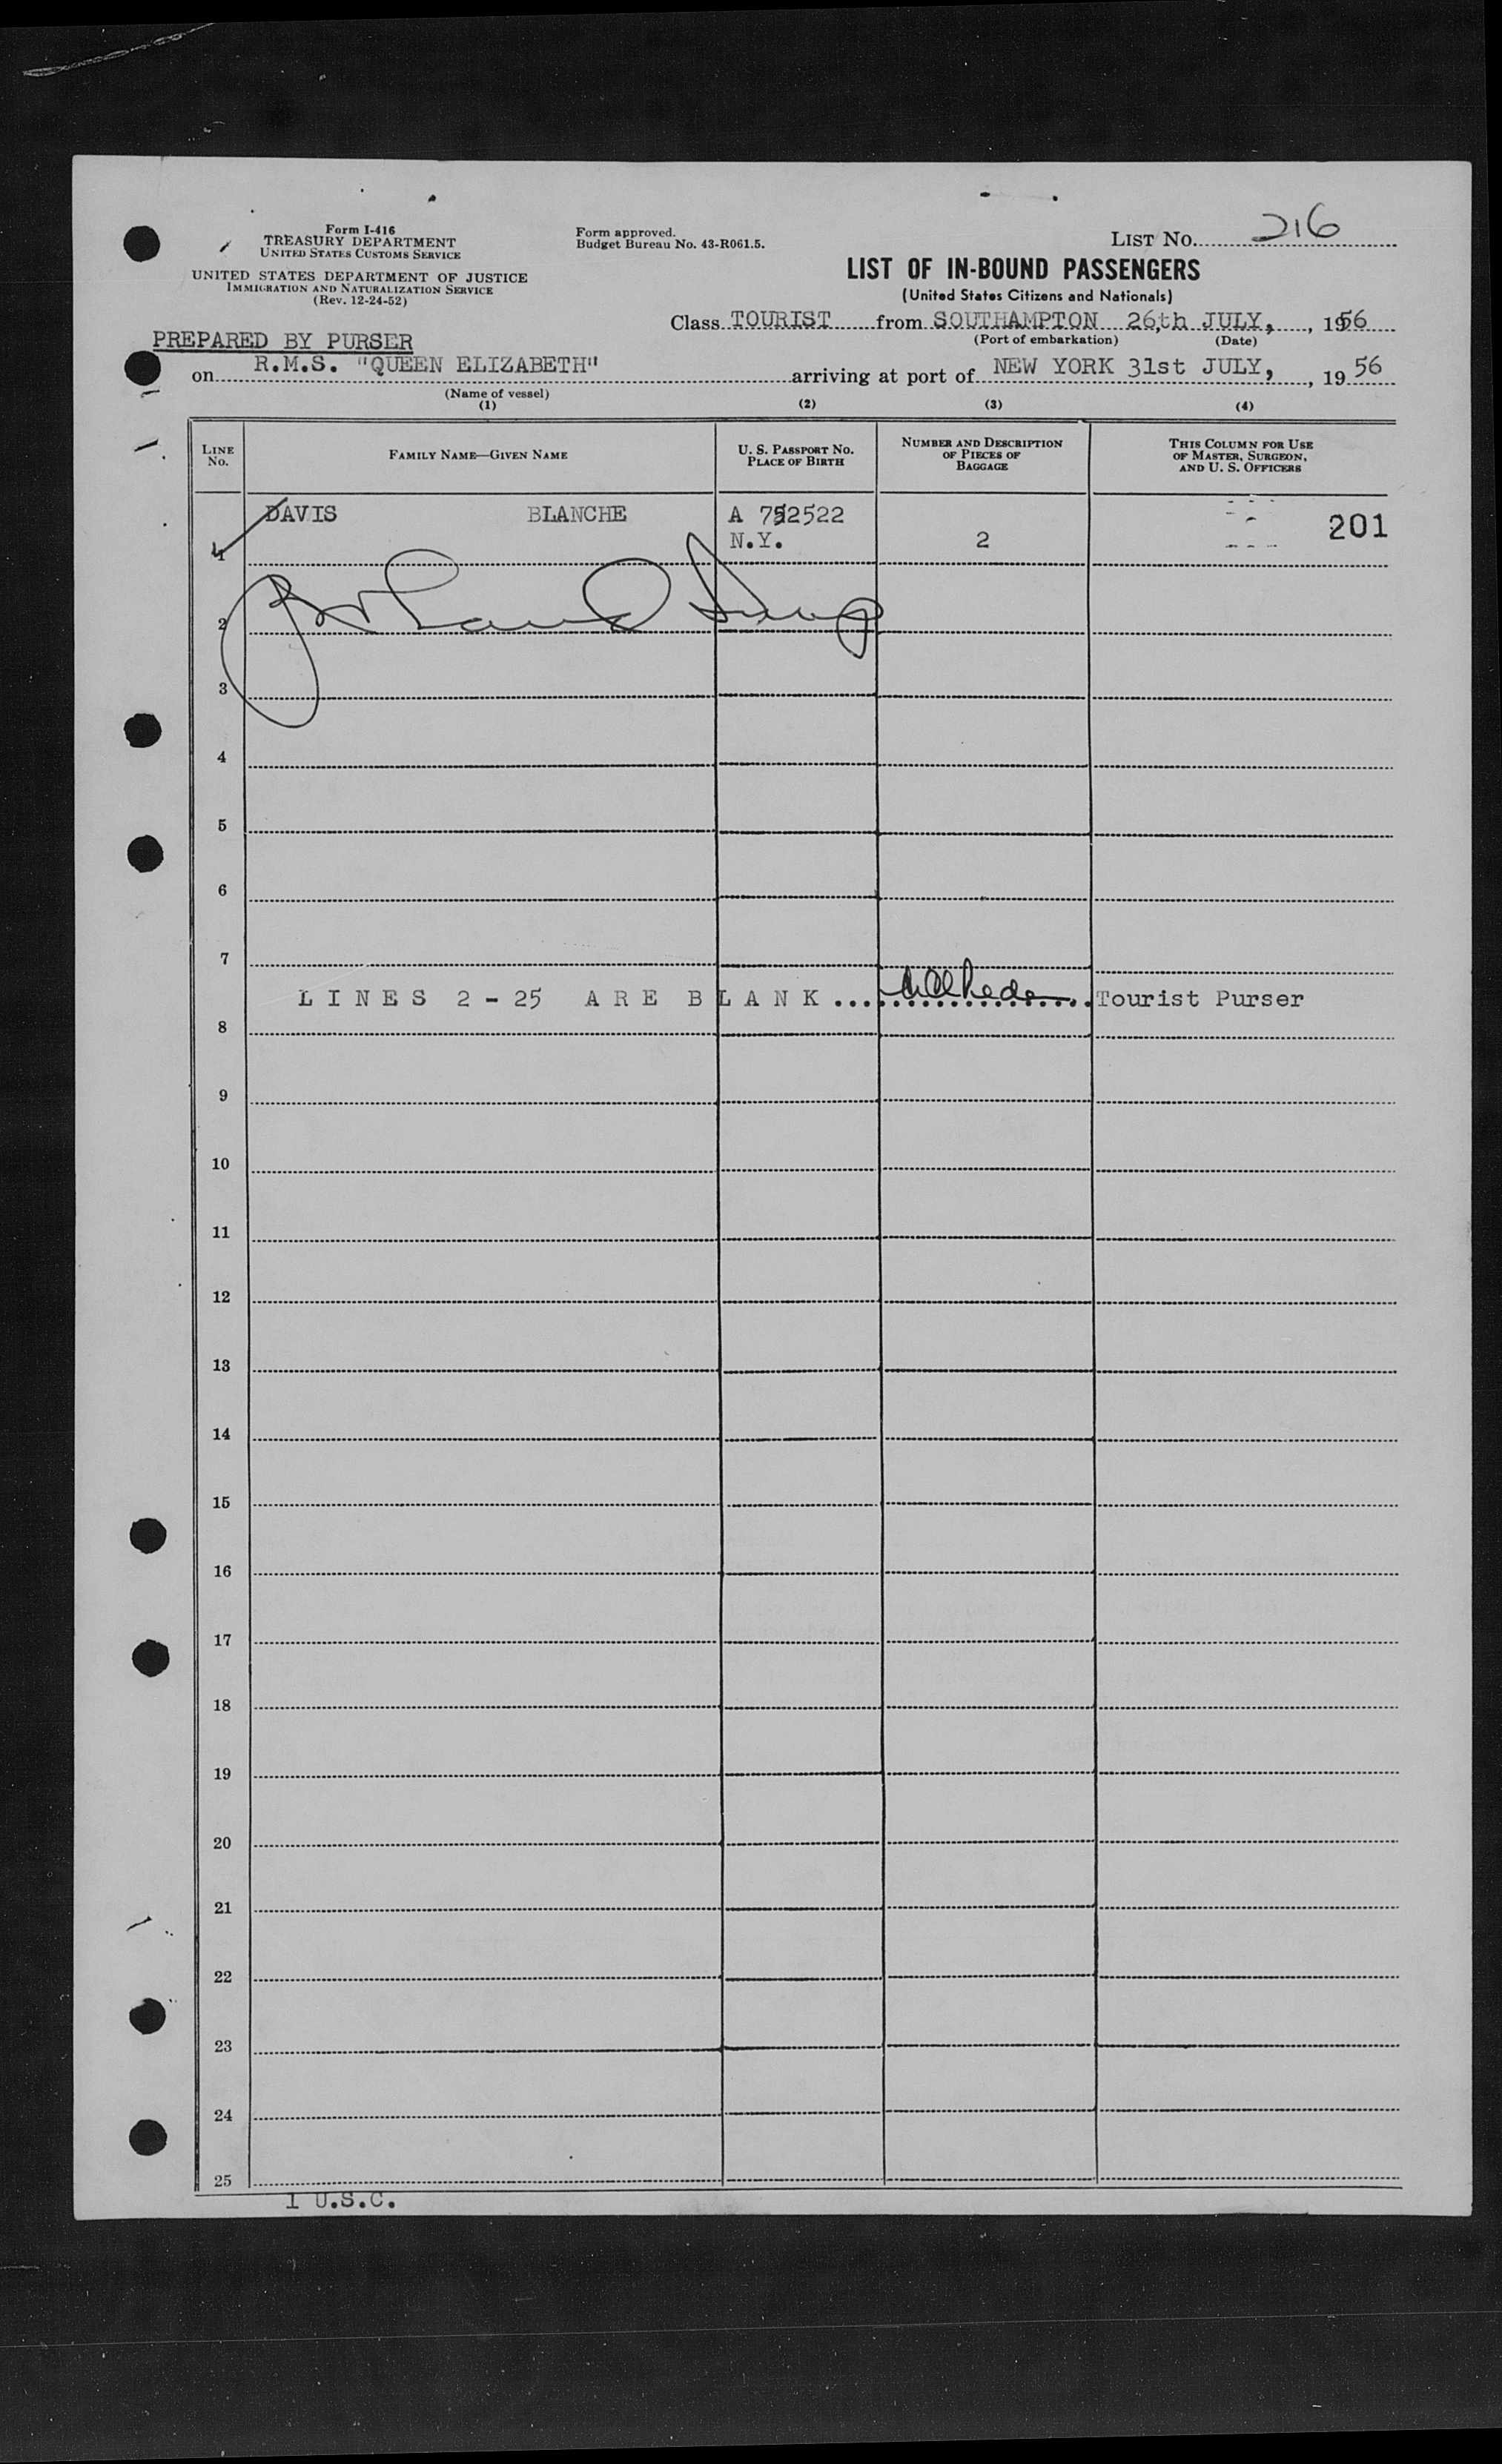 Form I-416
TREASURY DEPARTMENT
UNITED STATES CUSTOMS SERVICE
UNITED STATES DEPARTMENT OF JUSTICE
IMMIGRATION AND NATURALIZATION SERVICE
(Rev. 12-24-52)
Form approved.
Budget Bureau No. 43-R061.5.
LIST No. 216
LIST OF IN-BOUND PASSENGERS
(United States Citizens and Nationals)
Class TOURIST from SOUTHAMPTON 26th JULY, , 1956
(Port of embarkation) (Date)
PREPARED BY PURSER
on R.M.S. "QUEEN ELIZABETH" arriving at port of NEW YORK 31st JULY, , 19 56
(Name of vessel)
(1) (2) (3) (4)
LINE No. FAMILY NAME—GIVEN NAME U. S. PASSPORT No. PLACE OF BIRTH NUMBER AND DESCRIPTION OF PIECES OF BAGGAGE THIS COLUMN FOR USE OF MASTER, SURGEON, AND U. S. OFFICERS
DAVIS BLANCHE A 752522 201
1 N.Y. 2
2
3
4
5
6
7
LINES 2-25 ARE BLANK Tourist Purser
8
9
10
11
12
13
14
15
16
17
18
19
20
21
22
23
24
25
1 U.S.C.